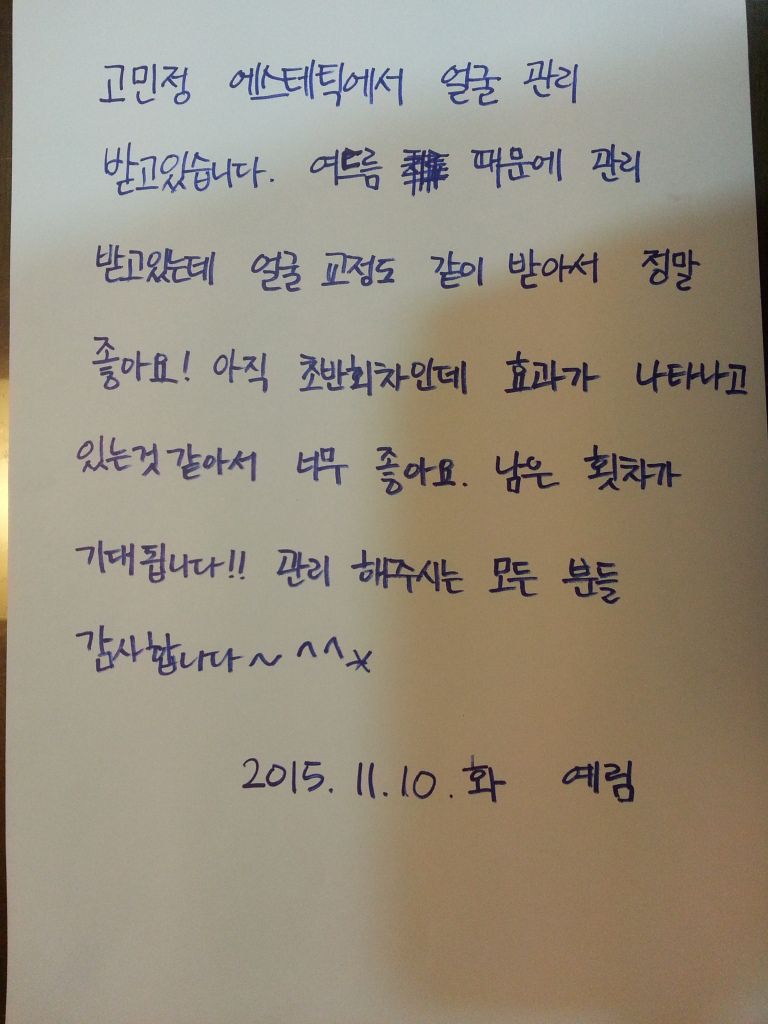 고민정 에스테틱에서 얼굴 관리
받고있습니다. 여드름 때문에 관리
받고있는데 얼굴 교정도 같이 받아서 정말
좋아요! 아직 초반회차인데 효과가 나타나고
있는것같아서 너무 좋아요. 남은 횟차가
기대됩니다!! 관리 해주시는 모든 분들
감사합니다~ ^^*
2015. 11. 10. 화 예림